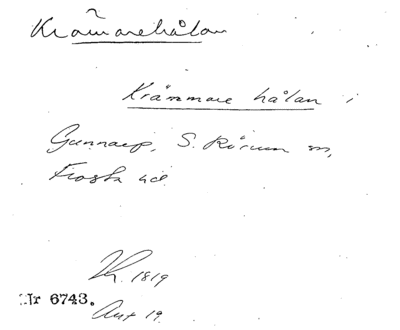 Krämmarehålan
Krämmare hålan i
Gunnarp, S. Rörum sn,
Frosta hd
1819
Nr 6743.
Ant 19.